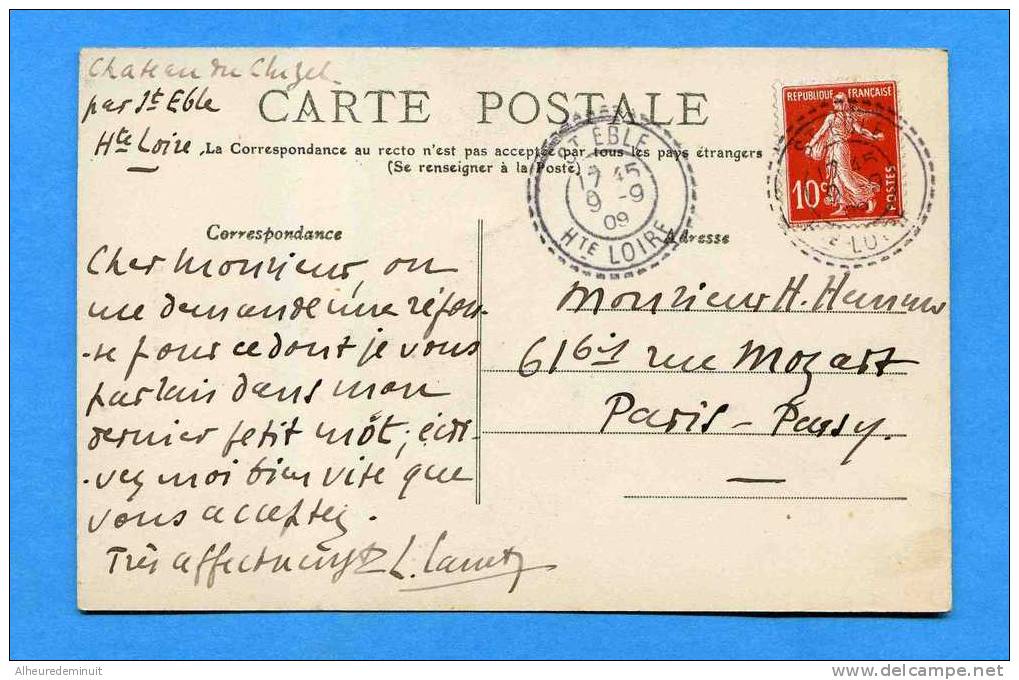 Chateau du Chazel
par St Eble
Hte Loire
CARTE POSTALE
La Correspondance au recto n'est pas acceptée par tous les pays étrangers
(Se renseigner à la Poste)
ST EBLE
17 45
9 -9
09
HTE LOIRE
REPUBLIQUE FRANÇAISE
10c
POSTES
Correspondance
Cher Monsieur, on
me demande une répon-
-se pour ce dont je vous
parlais dans mon
dernier petit môt; écri-
-vez moi bien vite que
vous acceptez.
Très affectueuse L.
Adresse
Monsieur H.
61 bis rue Mozart
Paris - Passy.
Alheuredeminuit
delcampe.net